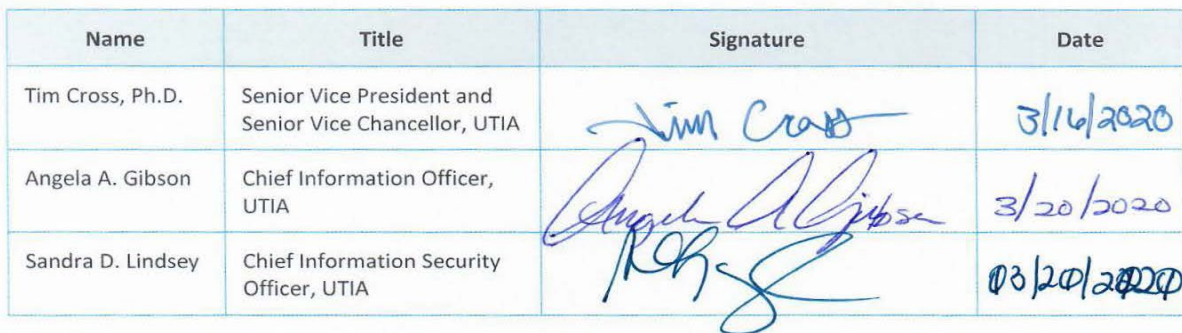 Name Title Signature Date
Tim Cross, Ph.D. Senior Vice President and
Senior Vice Chancellor, UTIA Tim Cross 3/16/2020
Angela A. Gibson Chief Information Officer,
UTIA Angela A Gibson 3/20/2020
Sandra D. Lindsey Chief Information Security
Officer, UTIA 03/20/2020